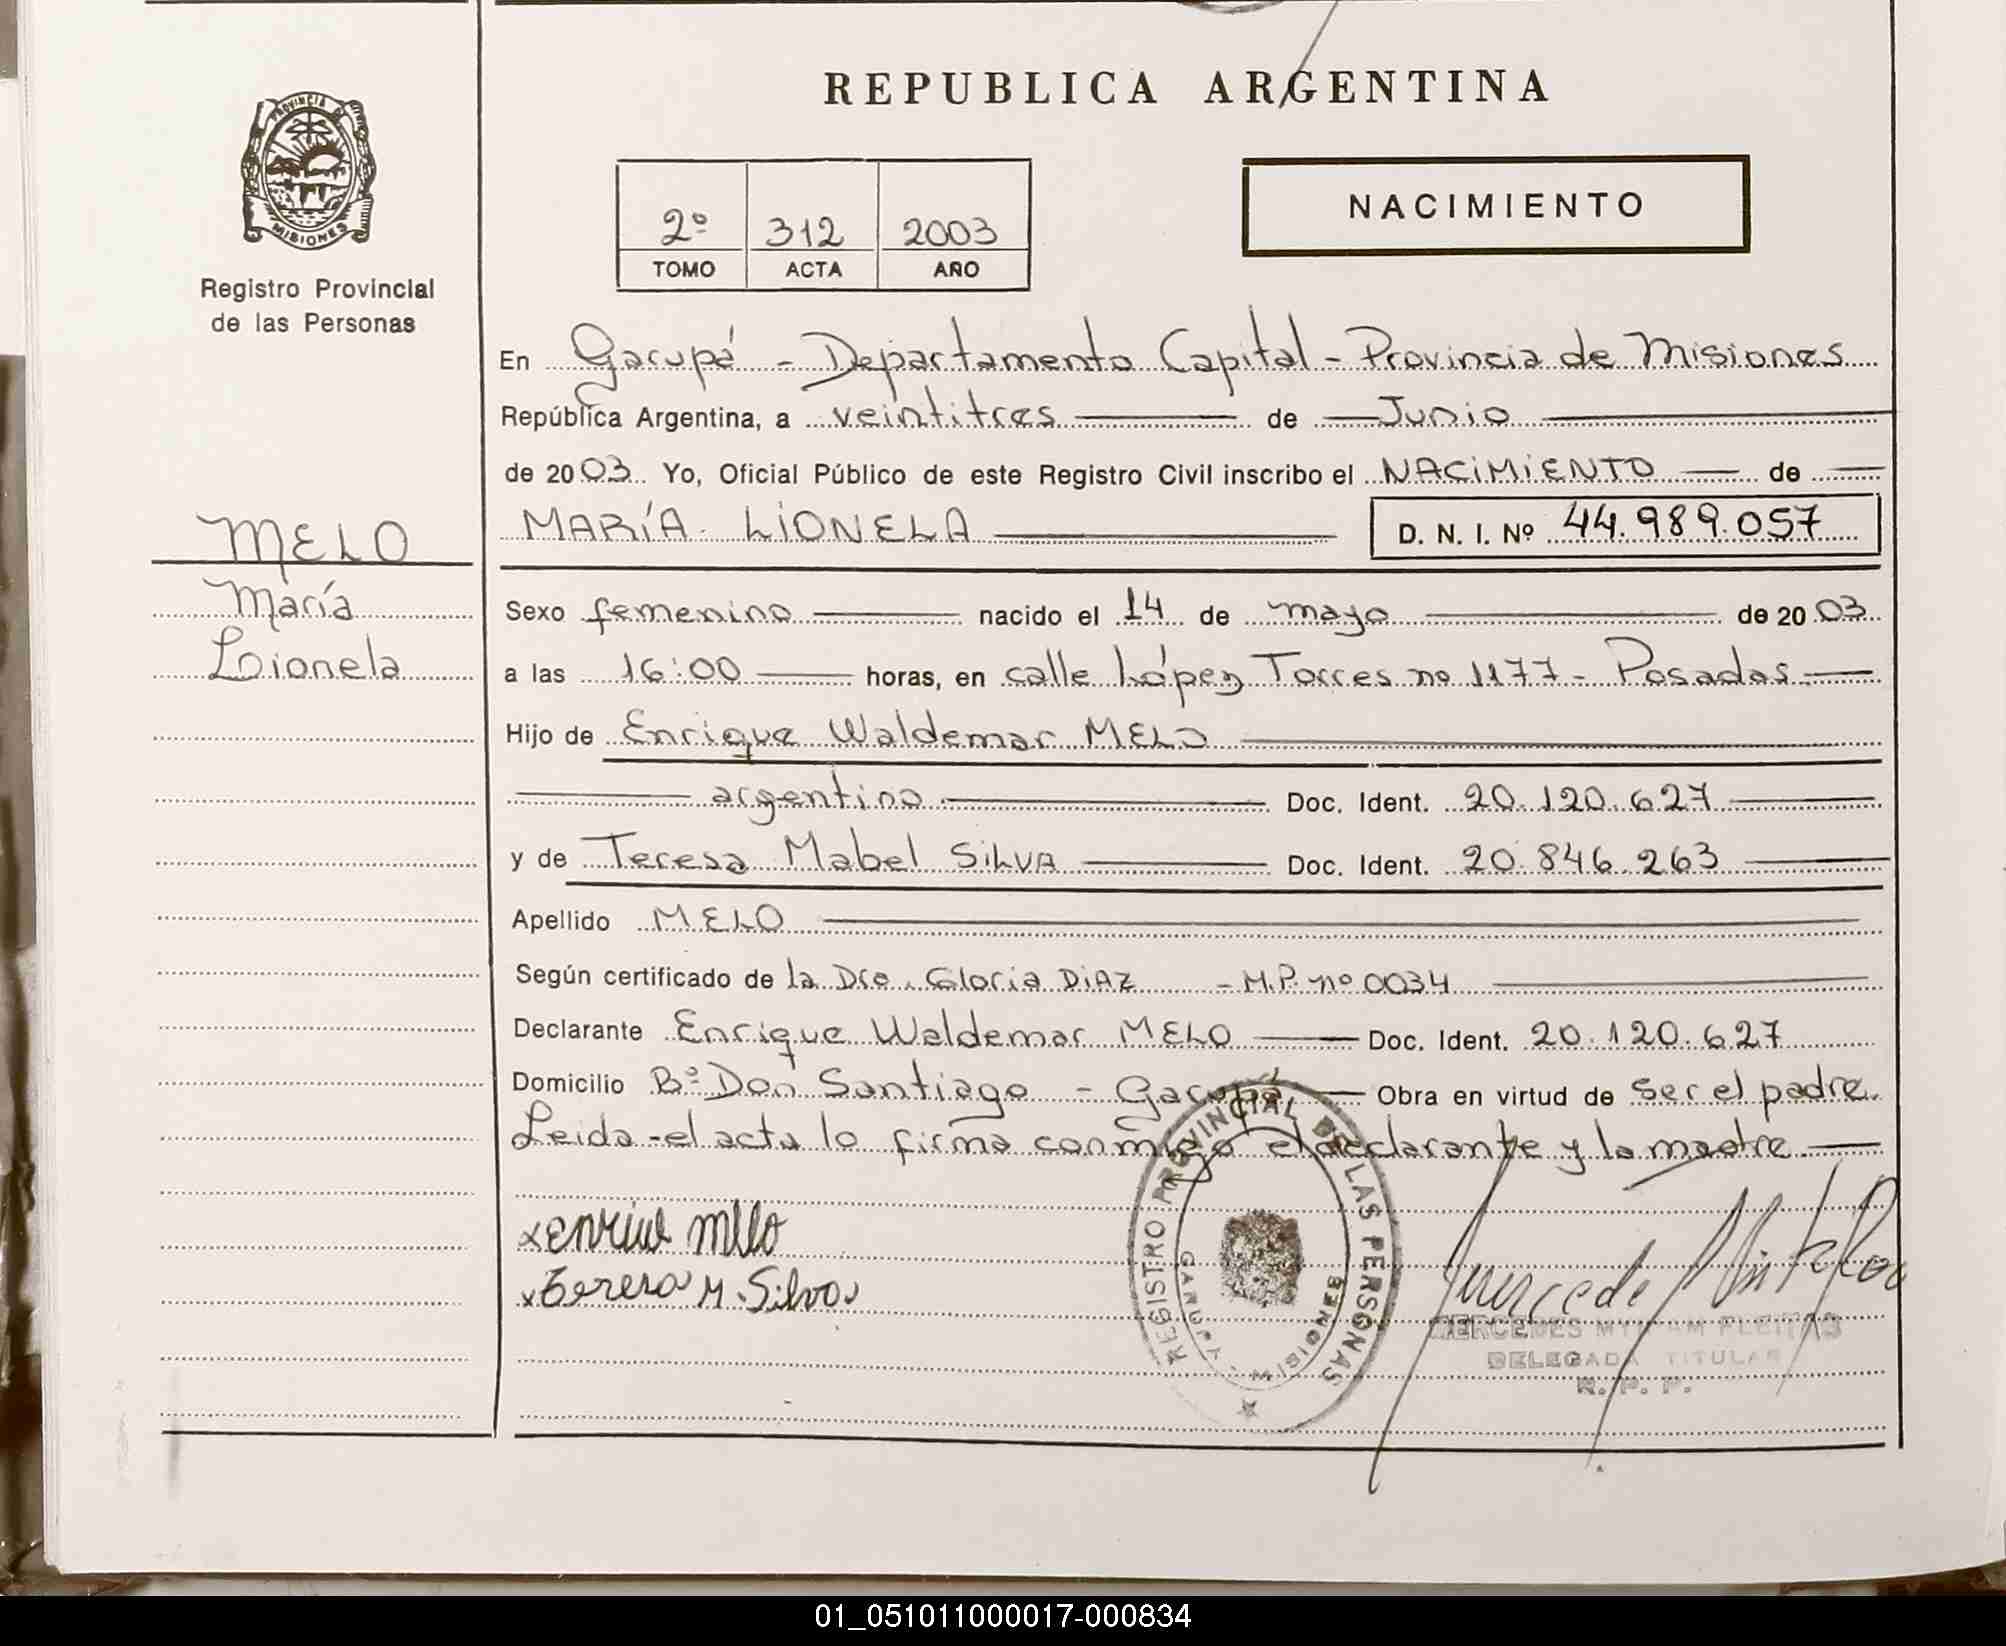 REPUBLICA ARGENTINA
PROVINCIA DE MISIONES
Registro Provincial
de las Personas
2º 312 2003
TOMO ACTA AÑO
NACIMIENTO
En Garupá - Departamento Capital - Provincia de Misiones
República Argentina, a veintitres de Junio
de 2003. Yo, Oficial Público de este Registro Civil inscribo el NACIMIENTO de
MARÍA LIONELA D. N. I. Nº 44.989.057
MELO
María
Lionela
Sexo femenino nacido el 14 de mayo de 2003
a las 16:00 horas, en calle López Torres nº 1177 - Posadas
Hijo de Enrique Waldemar MELO
argentino Doc. Ident. 20.120.627
y de Teresa Mabel SILVA Doc. Ident. 20.846.263
Apellido MELO
Según certificado de la Dra. Gloria DIAZ - M.P. nº 0034
Declarante Enrique Waldemar MELO Doc. Ident. 20.120.627
Domicilio Bº Don Santiago - Garupá Obra en virtud de ser el padre.
Leida el acta lo firma conmigo el declarante y la madre
x Enriue Melo
x Teresa M. Silva
REGISTRO PROVINCIAL DE LAS PERSONAS
GARUPA MISIONES
MERCEDES MYRIAM FLEITAS
DELEGADA TITULAR
R. P. P.
01_051011000017-000834